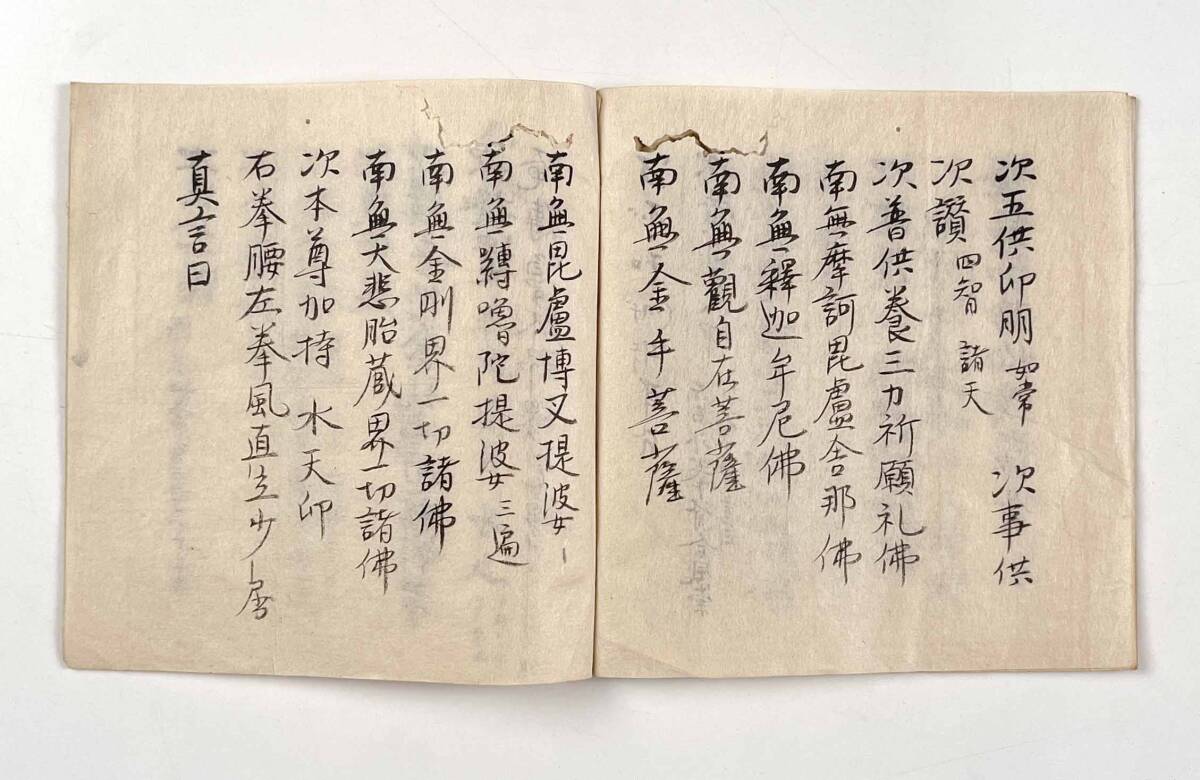 次五供印明 如常 次事供
次讃 四智 諸天
次普供養三力祈願礼佛
南無摩訶毘盧舎那佛
南無釋迦牟尼佛
南無觀自在菩薩
南無金手菩薩
南無毘盧博叉提婆
南無縛嚕陀提婆 三遍
南無金剛界一切諸佛
南無大悲胎蔵界一切諸佛
次本尊加持 水天印
右拳腰左拳風直立少屈
真言曰